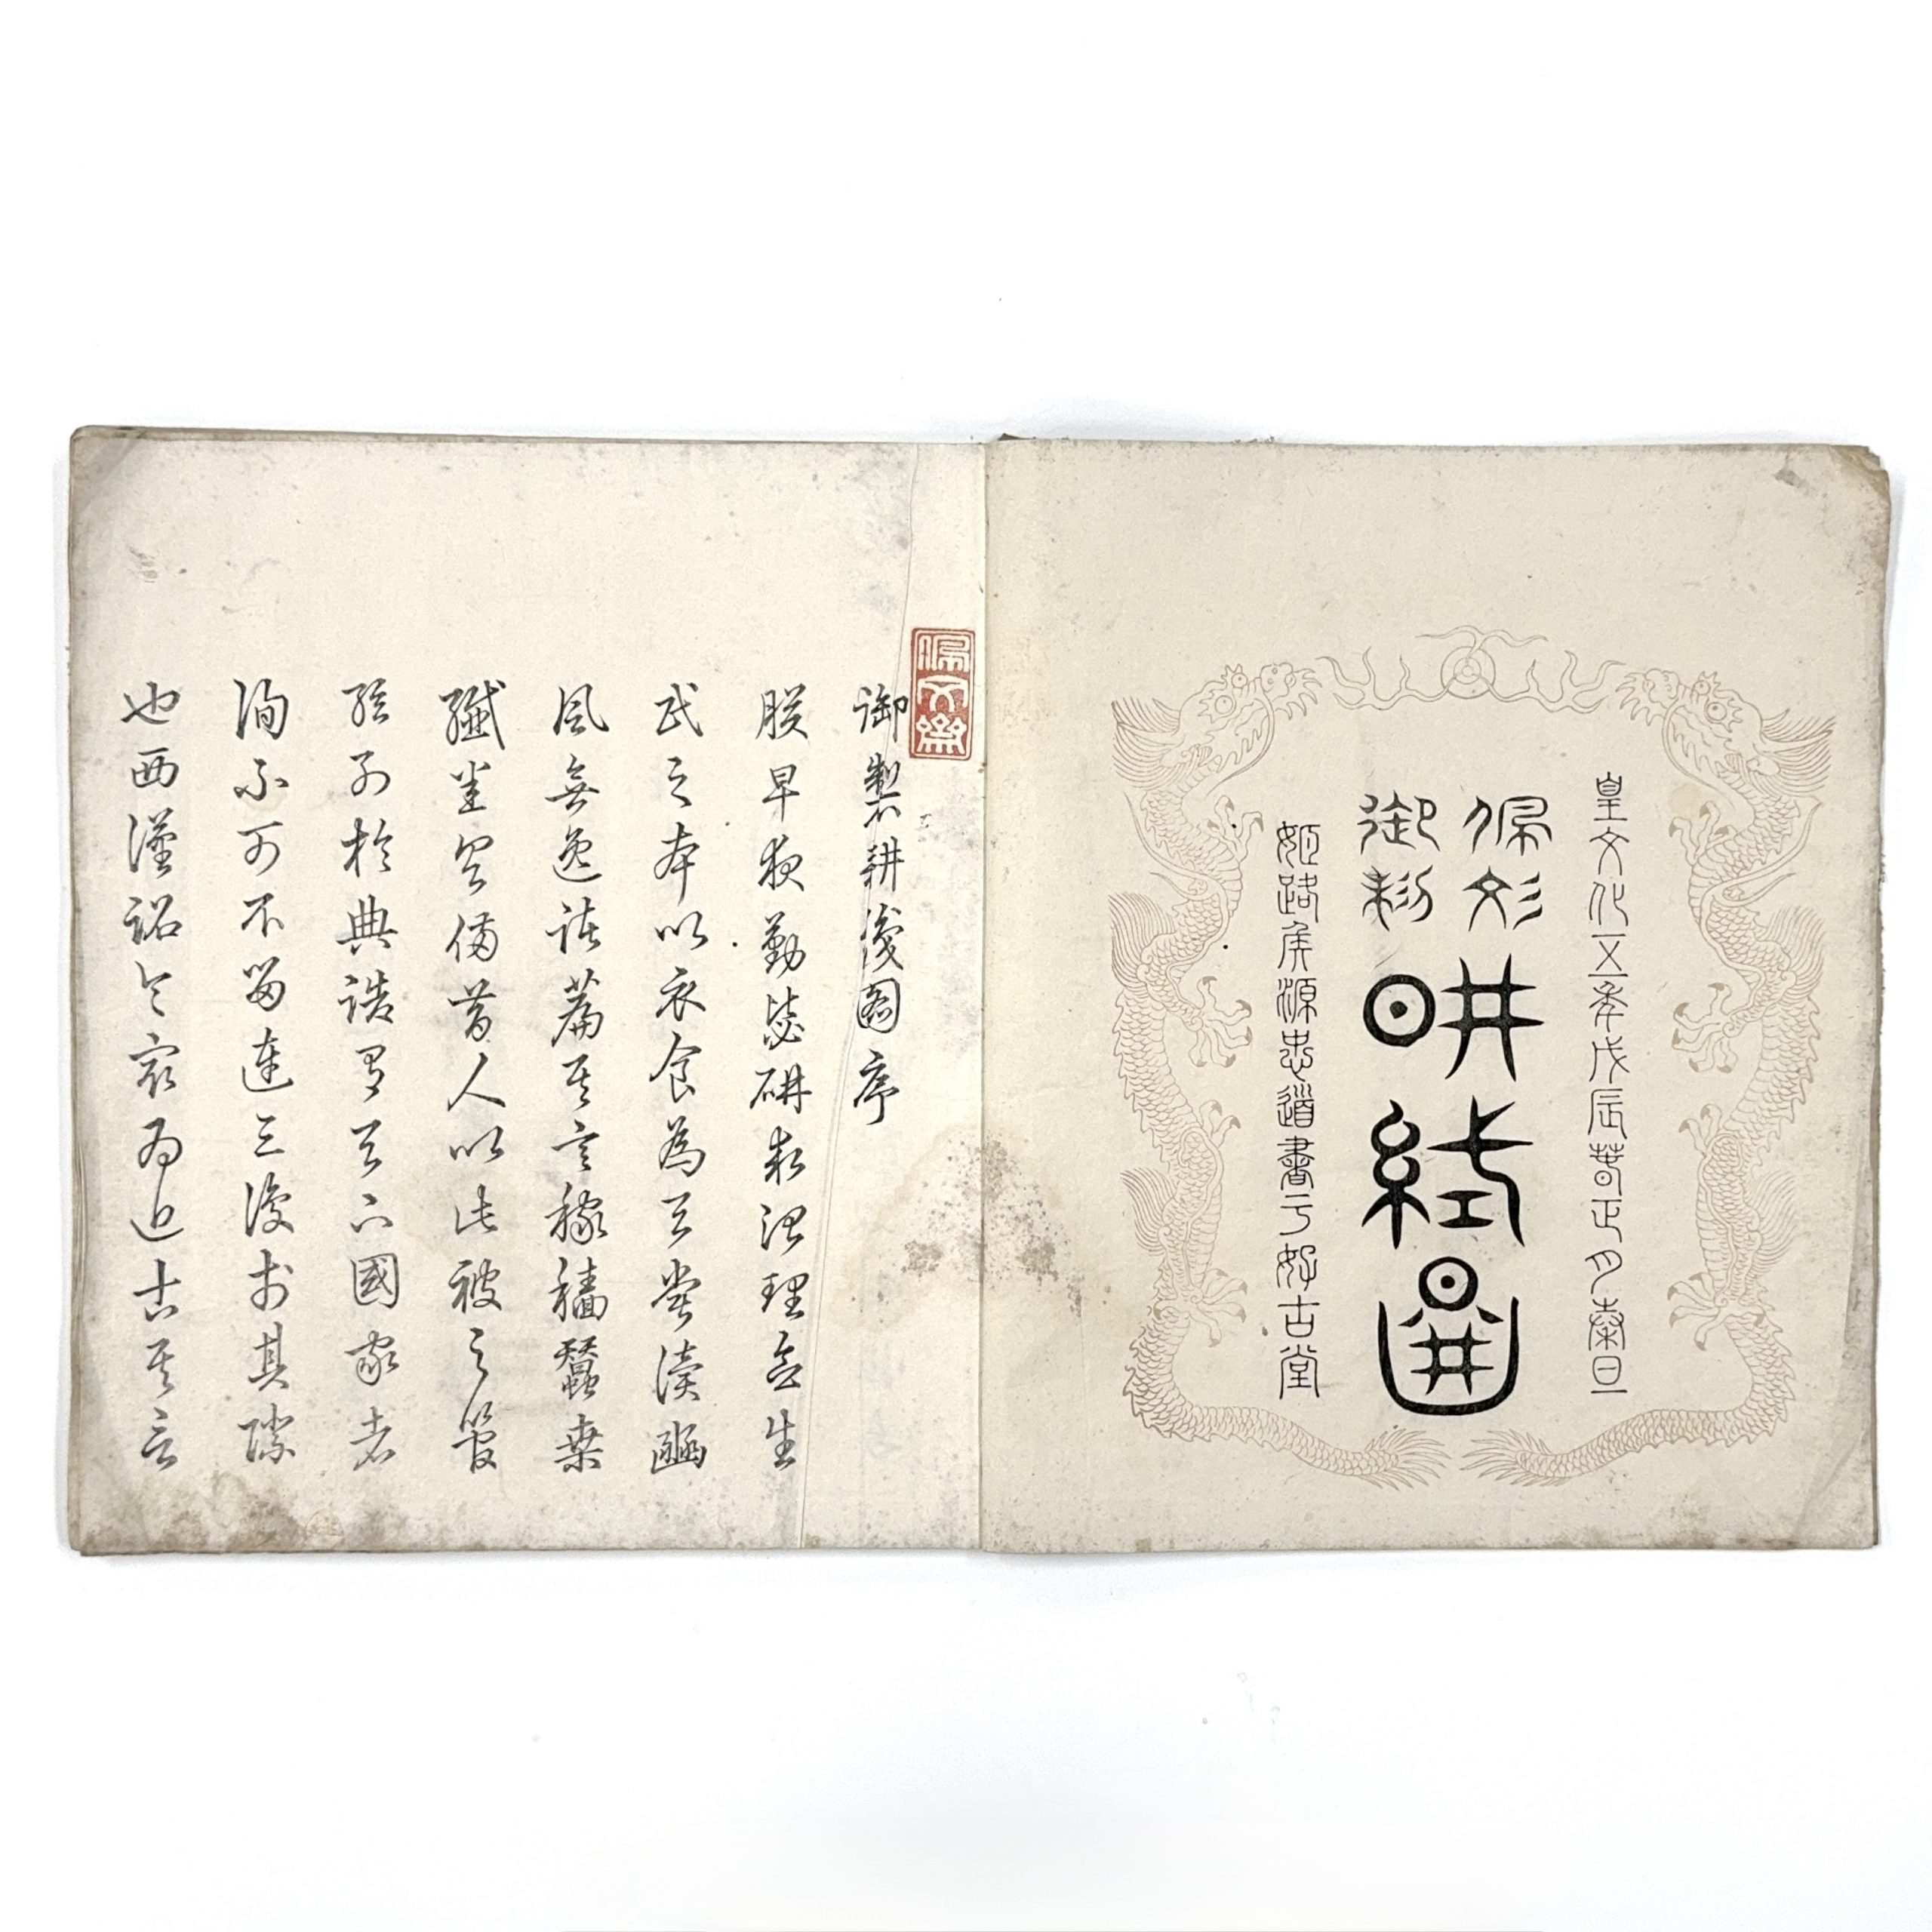 皇文化五年戊辰春正月泰旦
佩文
御制
畊織圖
姬路矦源忠道書于好古堂
佩文齋
御製耕織圖序
朕早夜勤毖研求治理念生
民之本以衣食為天嘗讀豳
風無逸諸篇其言稼穡蠶桑
纖悉具備昔人以此被之管
絃列於典誥有天下國家者
洵不可不留連三復於其際
也西漢詔令最為近古其言